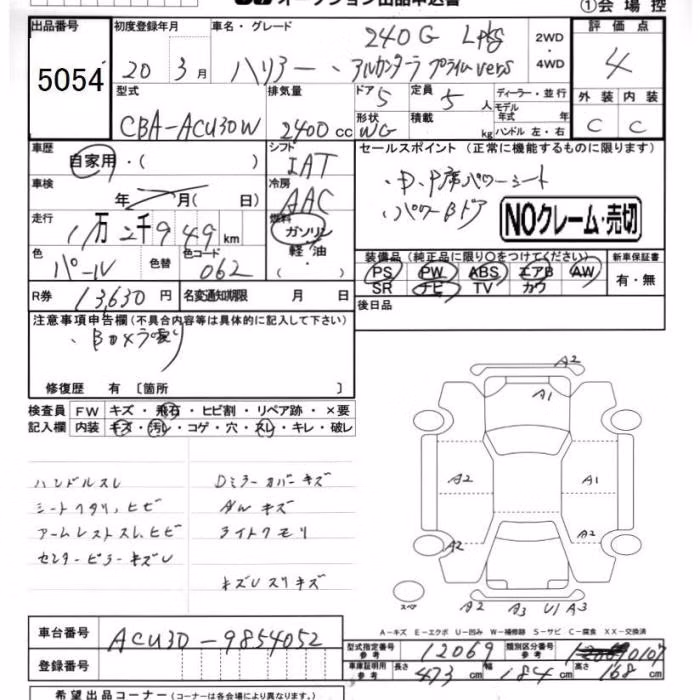 オークション出品申込書
①会場控
出品番号 5054
初度登録年月 20年 3月
車名・グレード 240G Lpkg
ハリアー アルカンターラ プライムvers
2WD・4WD
評価点 4
外装 内装
C C
型式 CBA-ACU30W
排気量 2400cc
ドア 5
定員 5人
形状 WG
積載 kg
ディーラー・並行
モデル年式 年式
ハンドル 左・右
車歴 自家用・( )
シフト IAT
セールスポイント (正常に機能するものに限ります)
・D、P席パワーシート
・パワーBドア
NOクレーム・売切
車検 年 月(日)
冷房 AAC
走行 1万2千949km
燃料 ガソリン 軽油 ( )
色 パール
色替
色コード 062
装備品 (純正品に限り○をつけてください)
PS PW ABS エアB AW
SR ナビ TV カワ
新車保証書 有・無
R券 13,630円
名変通知期限 月 日
後日品
注意事項申告欄 (不具合内容等は具体的に記入して下さい)
修復歴 有 [箇所 ]
検査員記入欄
FW キズ・飛石・ヒビ割・リペア跡・×要
内装 キズ・汚レ・コゲ・穴・スレ・キレ・破レ
ハンドルスレ
シートヘタリ、ヒビ
アームレストスレ、ヒビ
センターピラーキズU
Dミラーカバーキズ
AWキズ
ライトクモリ
キズUスリキズ
A2
A1
A2 A1
A2 A2
スペア
A2 A3 U1 A3
A-キズ E-エクボ U-凹み W-補修跡 S-サビ C-腐食 XX-交換済
車台番号 ACU30-9854052
登録番号
型式指定番号 参考 12069
類別区分番号 参考 0107
車庫証明用 参考 長さ 473cm 幅 184cm 高さ 168cm
希望出品コーナー (コーナーは各会場により異なります。)